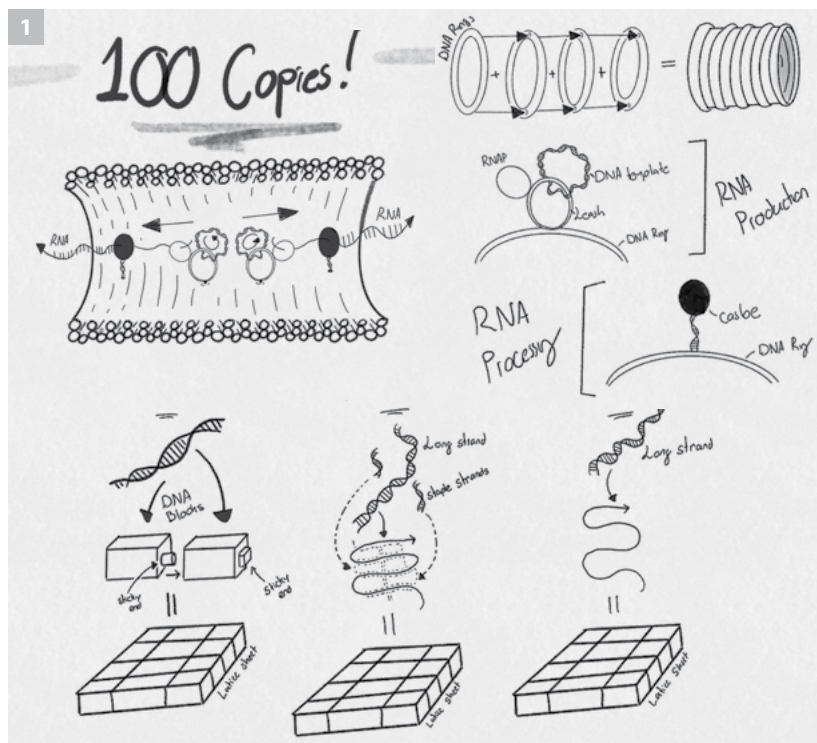 1
100 Copies!
DNA Rings
+
+
+
=
RNAP
DNA template
Leash
DNA Ring
RNA
Production
RNA
RNA
RNA
Processing
casbe
DNA Ring
DNA
Blocks
sticky
end
sticky
end
=
Lattice sheet
Long strand
staple strands
=
Lattice sheet
Long strand
=
Lattice Sheet